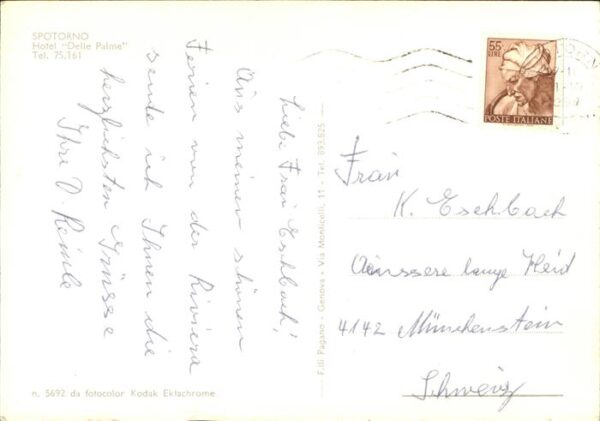 SPOTORNO
Hotel "Delle Palme"
Tel. 75.161
Liebe Frau Eschbach!
Aus meinen schönen
Ferien von der Riviera
sende ich Ihnen die
herzlichsten Grüsse
Ihre D.
n. 5692 da fotocolor Kodak Ektachrome
F.lli Pagano - Genova - Via Monticelli, 11 - Tel. 893.825
55
LIRE
POSTE ITALIANE
Frau
K. Eschbach
Aeussere lange Heid
4142 Münchenstein
Schweiz